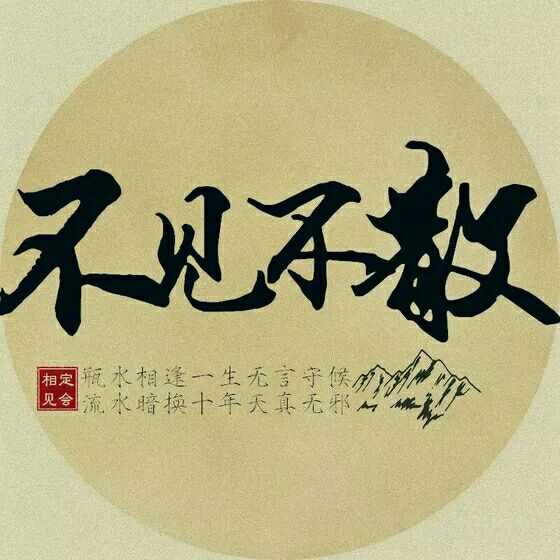 不见不散
定会相见
瓶水相逢一生无言守候
流水暗换十年天真无邪